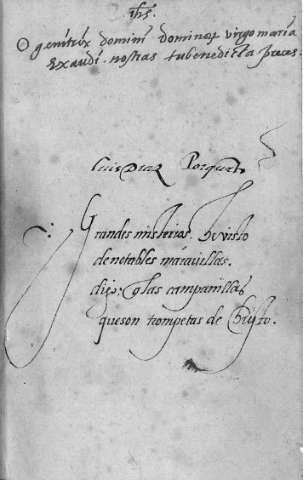 Jhs
O genitrix domini dominaq virgo maria
Exaudi nostras tu benedicta preces.
Luis Diaz
Grandes misterios he visto
de notables maravillas.
dixe: q las campanillas
que son trompetas de Christo.